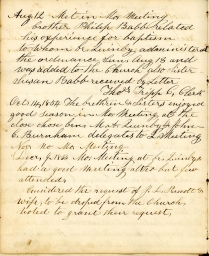 Aug 12 Met in Mo Meeting
brother Philip Babb related
his experience for baptism
to whom br Quinby administered
the ordinance, Sun Aug 18 and
was added to the Church also sister
Susan Babb received by letter
Thos Tripp C, Clerk
Oct. 14, 1854 The brethrin & sisters enjoyed
good season in Mo Meeting at the
close chose bros M. H. Quinby & John
C. Burnham delegates to Q Meeting
Nov no Mo Meeting
Mo Meeting at
had a good meeting altho but few
attended
Considered the request of
wife, to be droped from the Church
voted to grant their request,